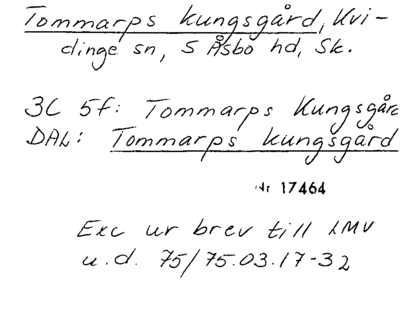 Tommarps kungsgård, Kvi-
dinge sn, S Åsbo hd, Sk.
3C 5f: Tommarps Kungsgård
DAL: Tommarps kungsgård
Nr 17464
Exc ur brev till LMV
u.d. 75/75.03.17-32